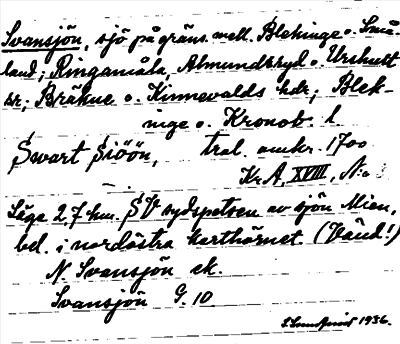 Svansjön, sjö på gräns. mell. Blekinge o. Små-
land; Ringamåla, Almundsryd o. Urshult
sr; Bräkne o. Kinnevalds hdr; Blek-
inge o. Kronob. l.
Swart Siöön, tral. omkr. 1700
Kr.A, XVIII, N:o
Läge 2,7 km. SV sydspetsen av sjön Mien,
bel. i nordöstra karthörnet. (Vänd!)
N. Svansjön ek.
Svansjön G. 10
1936.